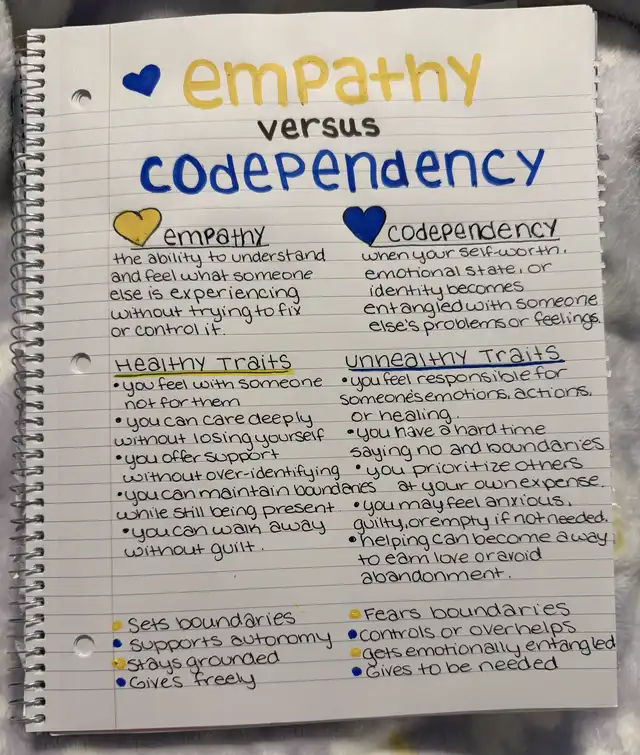 empathy
versus
codependency
empathy
the ability to understand
and feel what someone
else is experiencing
without trying to fix
or control it.
Healthy Traits
•you feel with someone
not for them
•you can care deeply
without losing yourself
•you offer support
without over-identifying
•you can maintain boundaries
while still being present
•you can walk away
without guilt.
•Sets boundaries
•supports autonomy
•stays grounded
•Gives freely
codependency
when your self-worth,
emotional state, or
identity becomes
entangled with someone
else's problems or feelings.
Unhealthy Traits
•you feel responsible for
someones emotions, actions,
or healing.
•you have a hard time
saying no and boundaries
•you prioritize others
at your own expense.
•you may feel anxious,
guilty, or empty if not needed.
•helping can become a way
to earn love or avoid
abandonment.
•Fears boundaries
•controls or overhelps
•gets emotionally entangled
•Gives to be needed